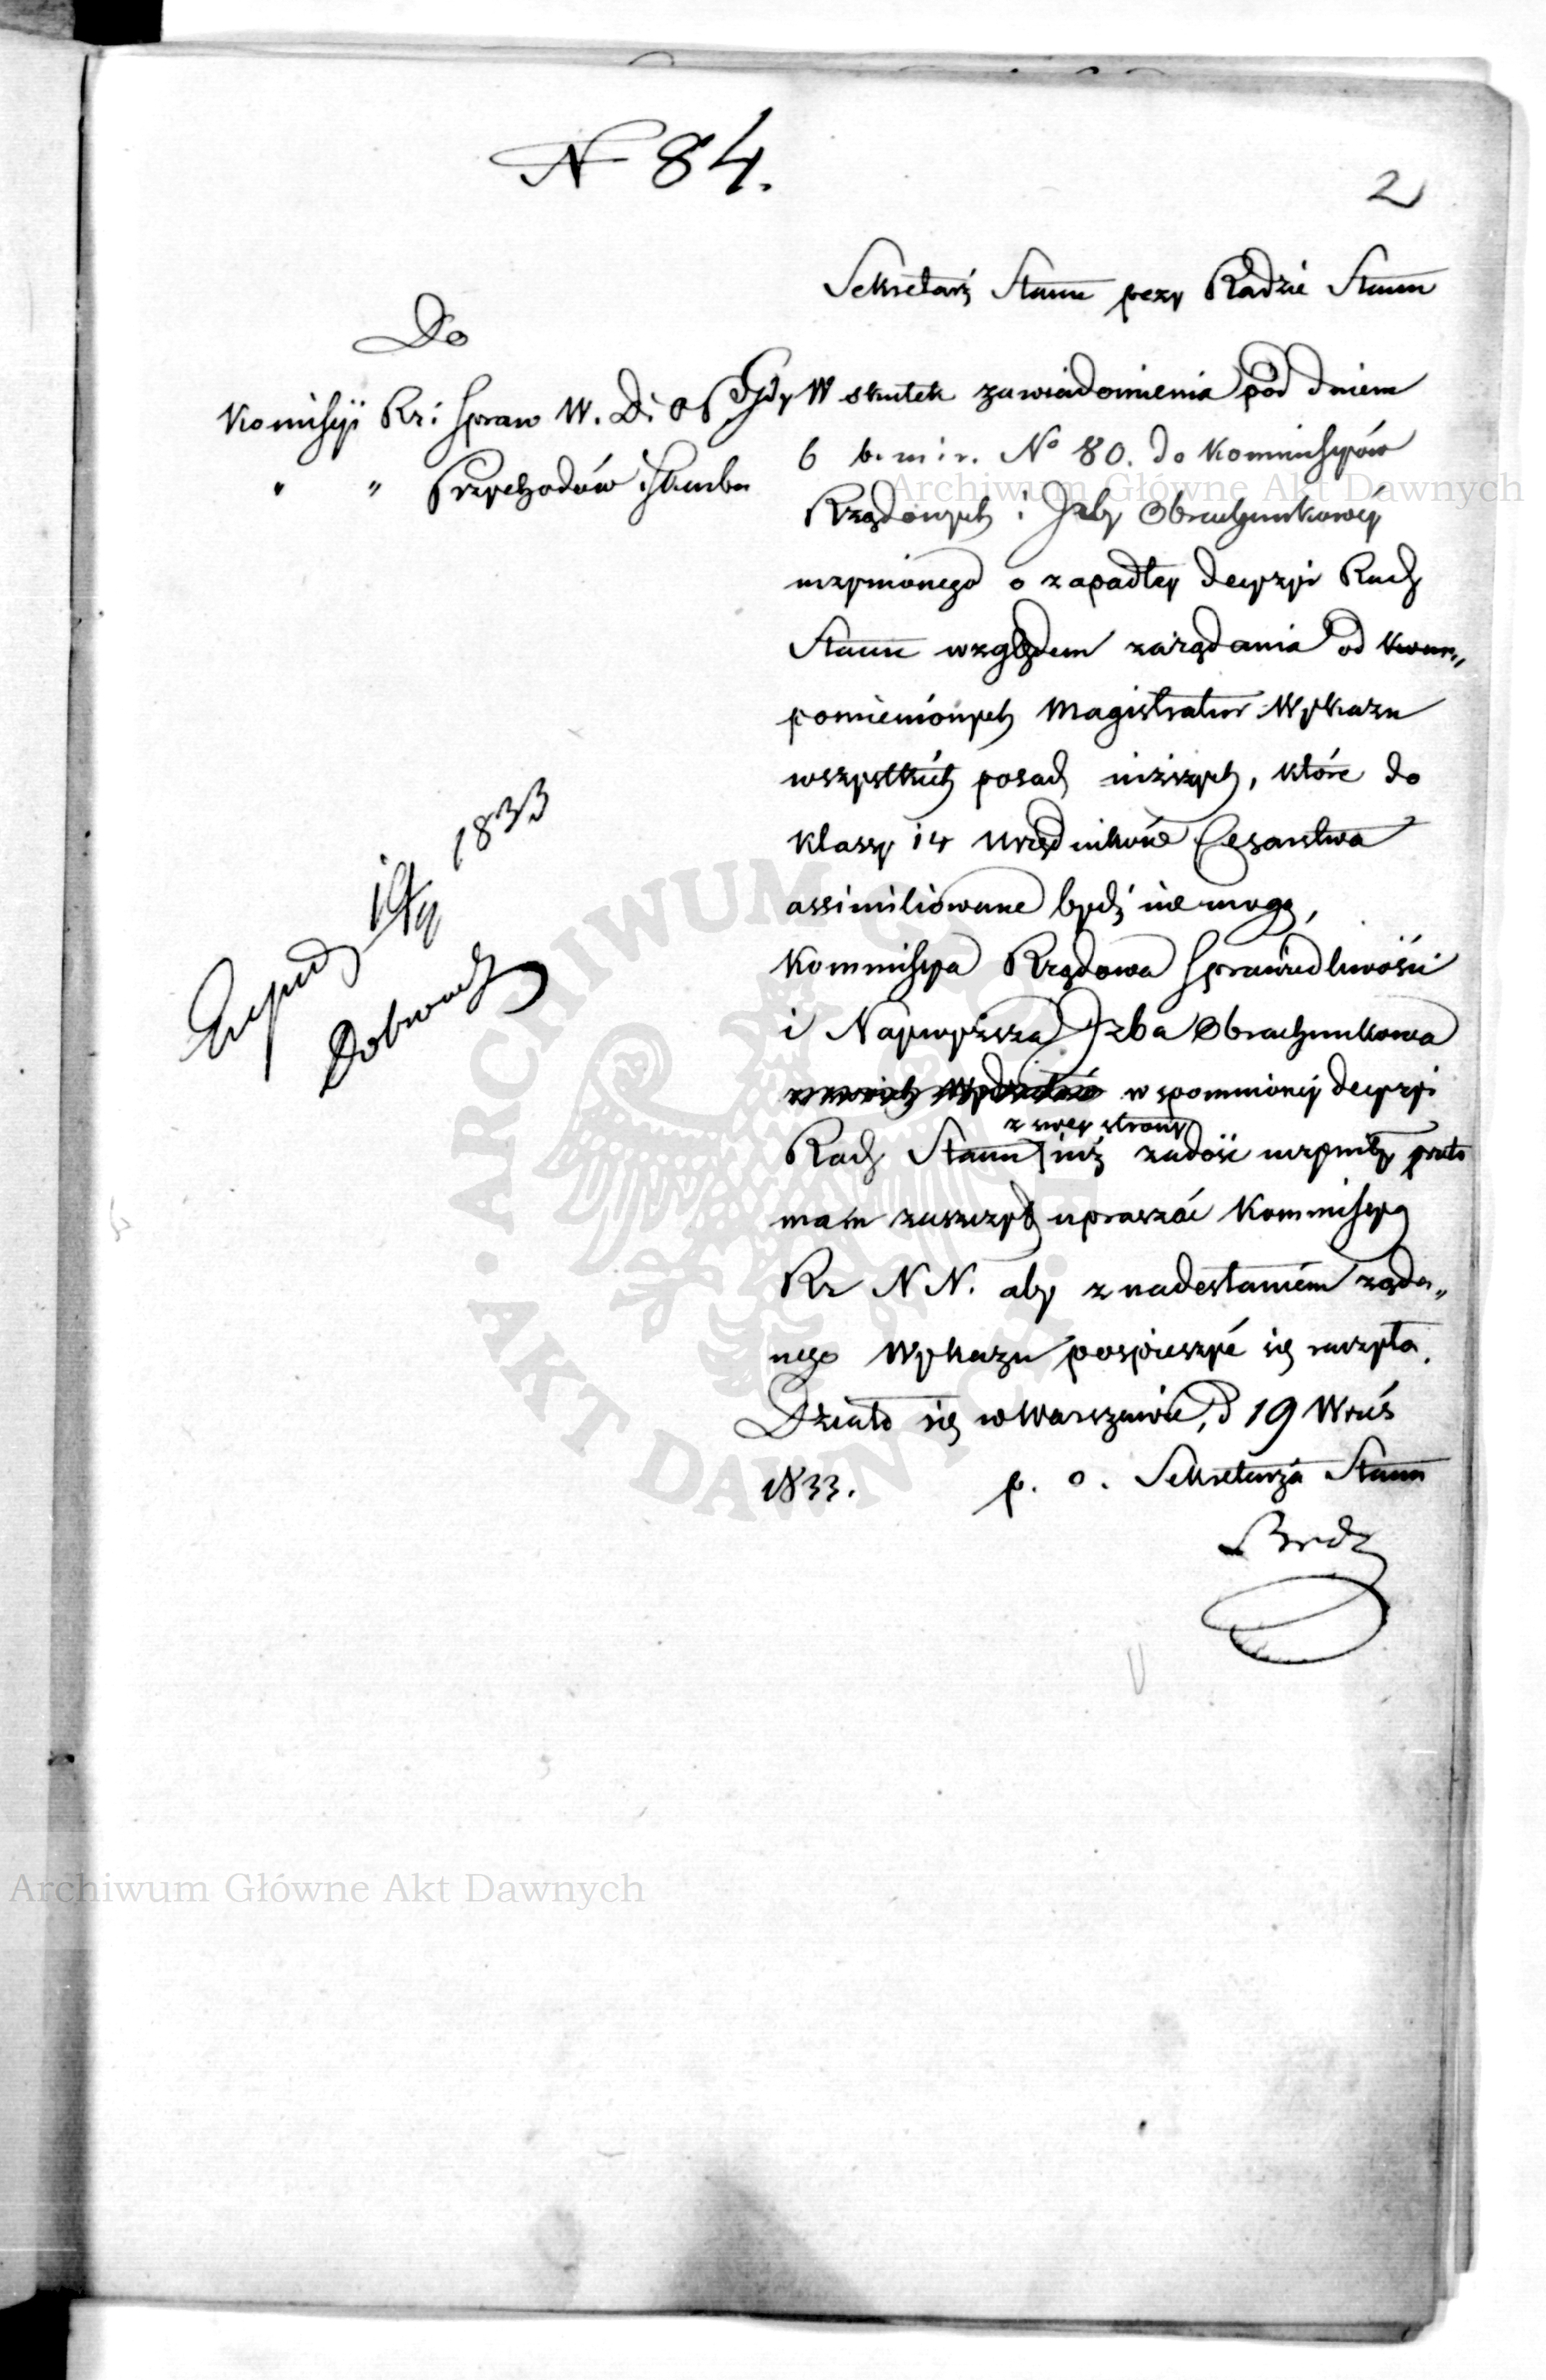 N 84.
2
Sekretarz Stanu przy Radzie Stanu
Do
Komisyi Rz: Spraw W. D. i O P.
" " Przychodów i Skarbu
W skutek zawiadomienia pod dniem
6 b. m. i r. No 80. do Kommissyów
Rządowych i Izby Obrachunkowéy
uczynionego o zapadłey decyzyi Rady
Stanu względem zarządania od
pomienionych Magistratur Wykazu
wszystkich posad niższych, które do
klassy 14 Urzędników Cesarstwa
assimiliowane bydź nie mogą,
Kommissya Rządowa Sprawiedliwości
i Naywyższa Izba Obrachunkowa
wspomnioney decyzyi
z swey strony
Rady Stanu już zadość uczyniły przeto
mam zaszczyt upraszać Kommissyą
Rz N N. aby z nadesłaniem żąda„
nego Wykazu pospieszyć się raczyła.
Działo się w Warszawie, d 19 Wrześ
1833. p. o. Sekretarza Stanu
1833
Archiwum Główne Akt Dawnych
ARCHIWUM GŁÓWNE AKT DAWNYCH
Archiwum Główne Akt Dawnych